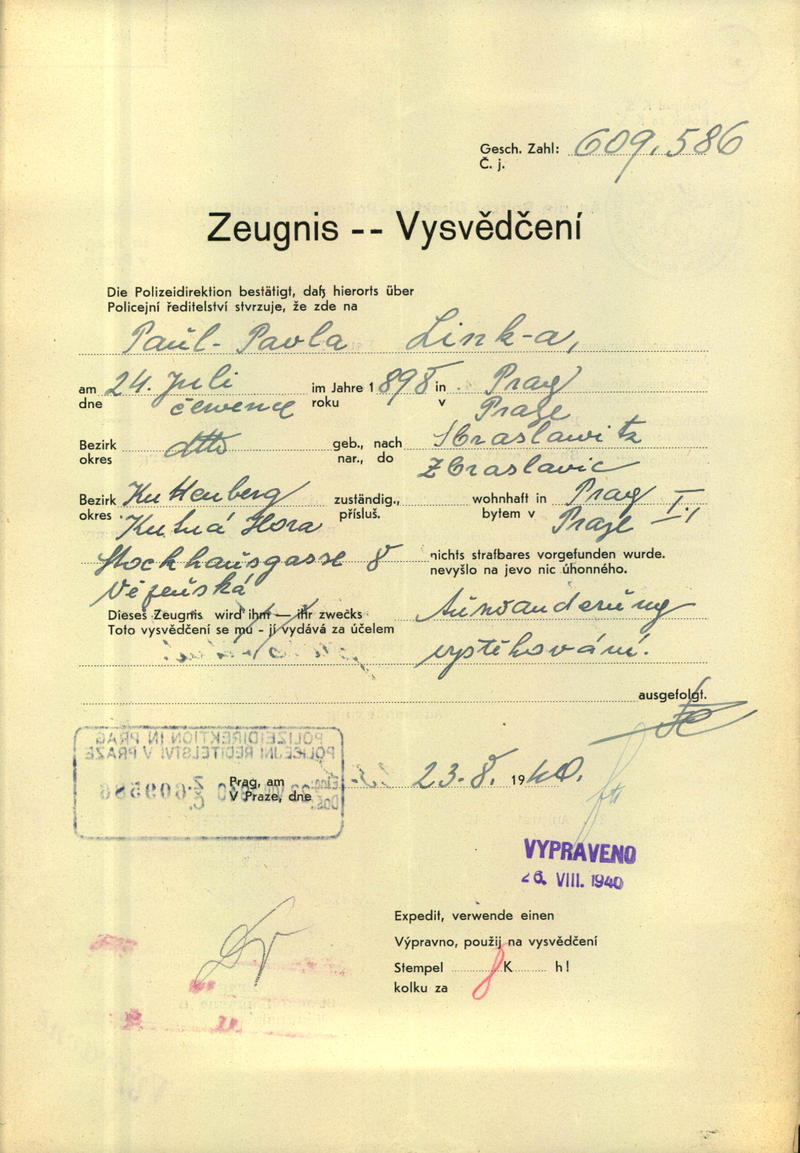 Gesch. Zahl: 609.586
Č. j.
Zeugnis -- Vysvědčení
Die Polizeidirektion bestätigt, daß hierorts über
Policejní ředitelství stvrzuje, že zde na
Paul - Pavla Link-a,
am 24. Juli im Jahre 1898 in Prag
dne července roku v Praze
Bezirk dtto geb., nach Sbraslawitz
okres nar., do Zbraslavic
Bezirk Kuttenberg zuständig., wohnhaft in Prag I.,
okres Kutná Hora přísluš. bytem v Praze
Stockhausgasse 8 nichts strafbares vorgefunden wurde.
Vězeňská nevyšlo na jevo nic úhonného.
Dieses Zeugnis wird ihm — ihr zwecks Auswanderung
Toto vysvědčení se mu - jí vydává za účelem
vystěhování.
ausgefolgt.
POLIZEIDIREKTION IN PRAG
POLICEJNÍ ŘEDITELSTVÍ V PRAZE
Prag, am 23. 8. 1940.
V Praze, dne
VYPRAVENO
26. VIII. 1940
Expedit, verwende einen
Výpravno, použij na vysvědčení
Stempel 8 K h!
kolku za